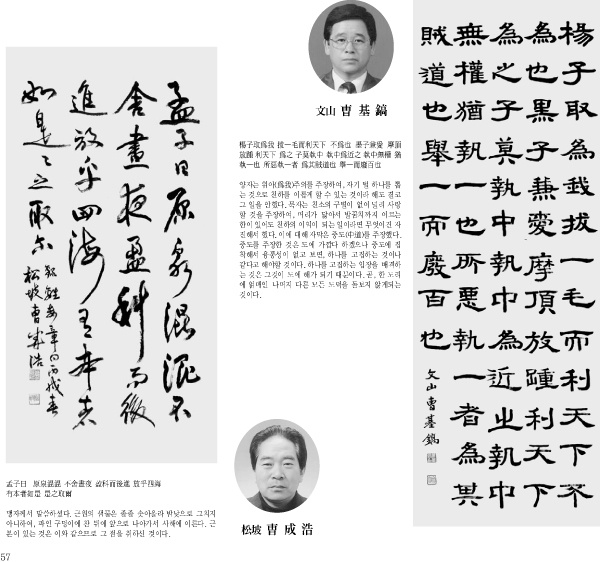 孟子曰原泉混混不
舍晝夜盈科而後
進放乎四海有本者
如是是之取尔
松坡曺成浩
文山 曺 基 鎬
楊子取爲我 拔一毛而利天下 不爲也 墨子兼愛 摩頂
放踵 利天下 爲之 子莫執中 執中爲近之 執中無權 猶
執一也 所惡執一者 爲其賊道也 擧一而廢百也
양자는 위아(爲我)주의를 주장하여, 자기 털 하나를 뽑
는 것으로 천하를 이롭게 할 수 있는 것이라 해도 결코
그 일을 안했다. 묵자는 친소의 구별이 없이 널리 사랑
할 것을 주장하여, 머리가 닳아서 발꿈치까지 이르는
한이 있어도 천하의 이익이 되는 일이라면 무엇이건 자
진해서 했다. 이에 대해 자막은 중도(中道)를 주장했다.
중도를 주장한 것은 도에 가깝다 하겠으나 중도에 집
착해서 융통성이 없고 보면, 하나를 고집하는 것이나
같다고 해야할 것이다. 하나를 고집하는 입장을 배격하
는 것은 그것이 도에 해가 되기 때문이다. 곧, 한 도리
에 얽매인 나머지 다른 모든 도덕을 돌보지 않게되는
것이다.
楊子取為我拔一毛而利天下不
為也墨子兼愛摩頂放踵利天下
為之子莫執中執中為近之執中
無權猶執一也所惡執一者為其
賊道也舉一而廢百也
文山曺基鎬
松坡 曺 成 浩
孟子曰 原泉混混 不舍晝夜 盈科而後進 放乎四海
有本者如是 是之取爾
맹자께서 말씀하셨다. 근원의 샘물은 졸졸 솟아올라 밤낮으로 그치지
아니하여, 패인 구덩이에 찬 뒤에 앞으로 나아가서 사해에 이른다. 근
본이 있는 것은 이와 같으므로 그 점을 취하신 것이다.
57